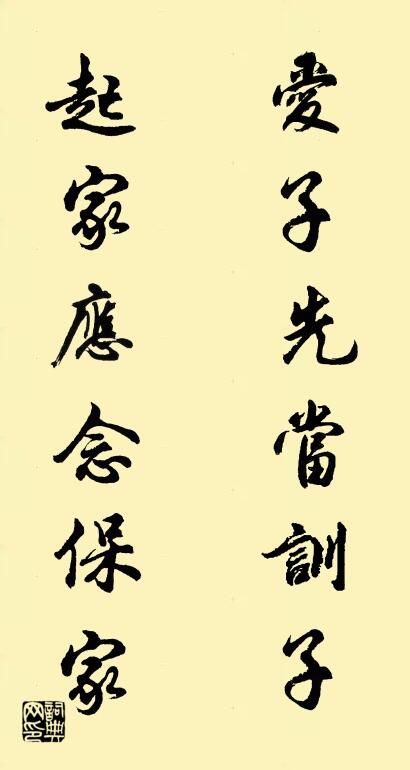 愛子先當訓子
起家應念保家
詞典网印